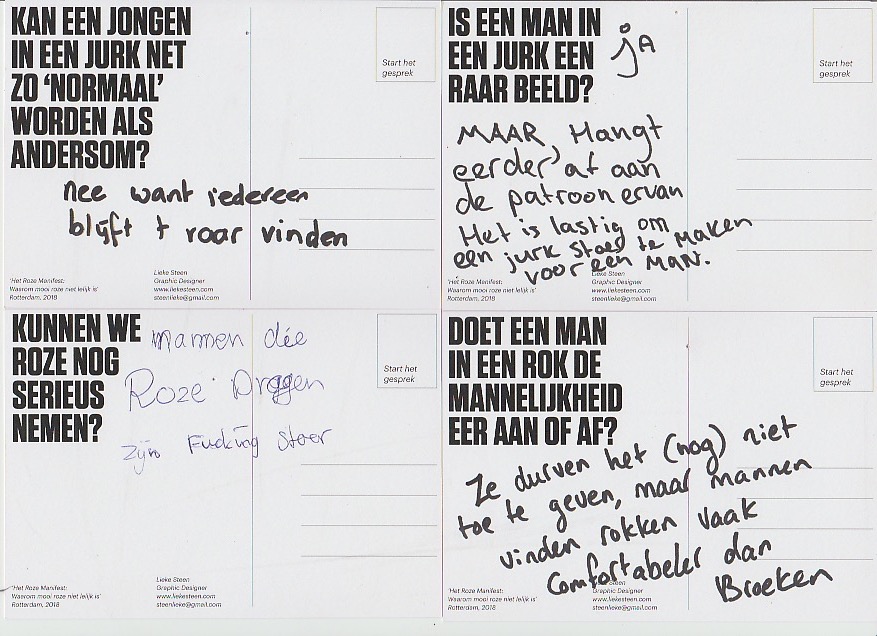 KAN EEN JONGEN
IN EEN JURK NET
ZO 'NORMAAL'
WORDEN ALS
ANDERSOM?
Start het
gesprek
nee want iedereen
blijft t raar vinden
'Het Roze Manifest:
Waarom mooi roze niet lelijk is'
Rotterdam, 2018
Lieke Steen
Graphic Designer
www.liekesteen.com
steenlieke@gmail.com
IS EEN MAN IN
EEN JURK EEN
RAAR BEELD?
jA
Start het
gesprek
MAAR, Hangt
eerder af aan
de patroon ervan
Het is lastig om
een jurk stoer te maken
voor een MAN.
'Het Roze Manifest:
Waarom mooi roze niet lelijk is'
Rotterdam, 2018
Lieke Steen
Graphic Designer
www.liekesteen.com
steenlieke@gmail.com
KUNNEN WE
ROZE NOG
SERIEUS
NEMEN?
Start het
gesprek
mannen die
Roze Dragen
zijn Fucking Stoer
'Het Roze Manifest:
Waarom mooi roze niet lelijk is'
Rotterdam, 2018
Lieke Steen
Graphic Designer
www.liekesteen.com
steenlieke@gmail.com
DOET EEN MAN
IN EEN ROK DE
MANNELIJKHEID
EER AAN OF AF?
Start het
gesprek
Ze durven het (nog) niet
toe te geven, maar mannen
vinden rokken vaak
Comfortabeler dan
Broeken
'Het Roze Manifest:
Waarom mooi roze niet lelijk is'
Rotterdam, 2018
Graphic Designer
www.liekesteen.com
steenlieke@gmail.com